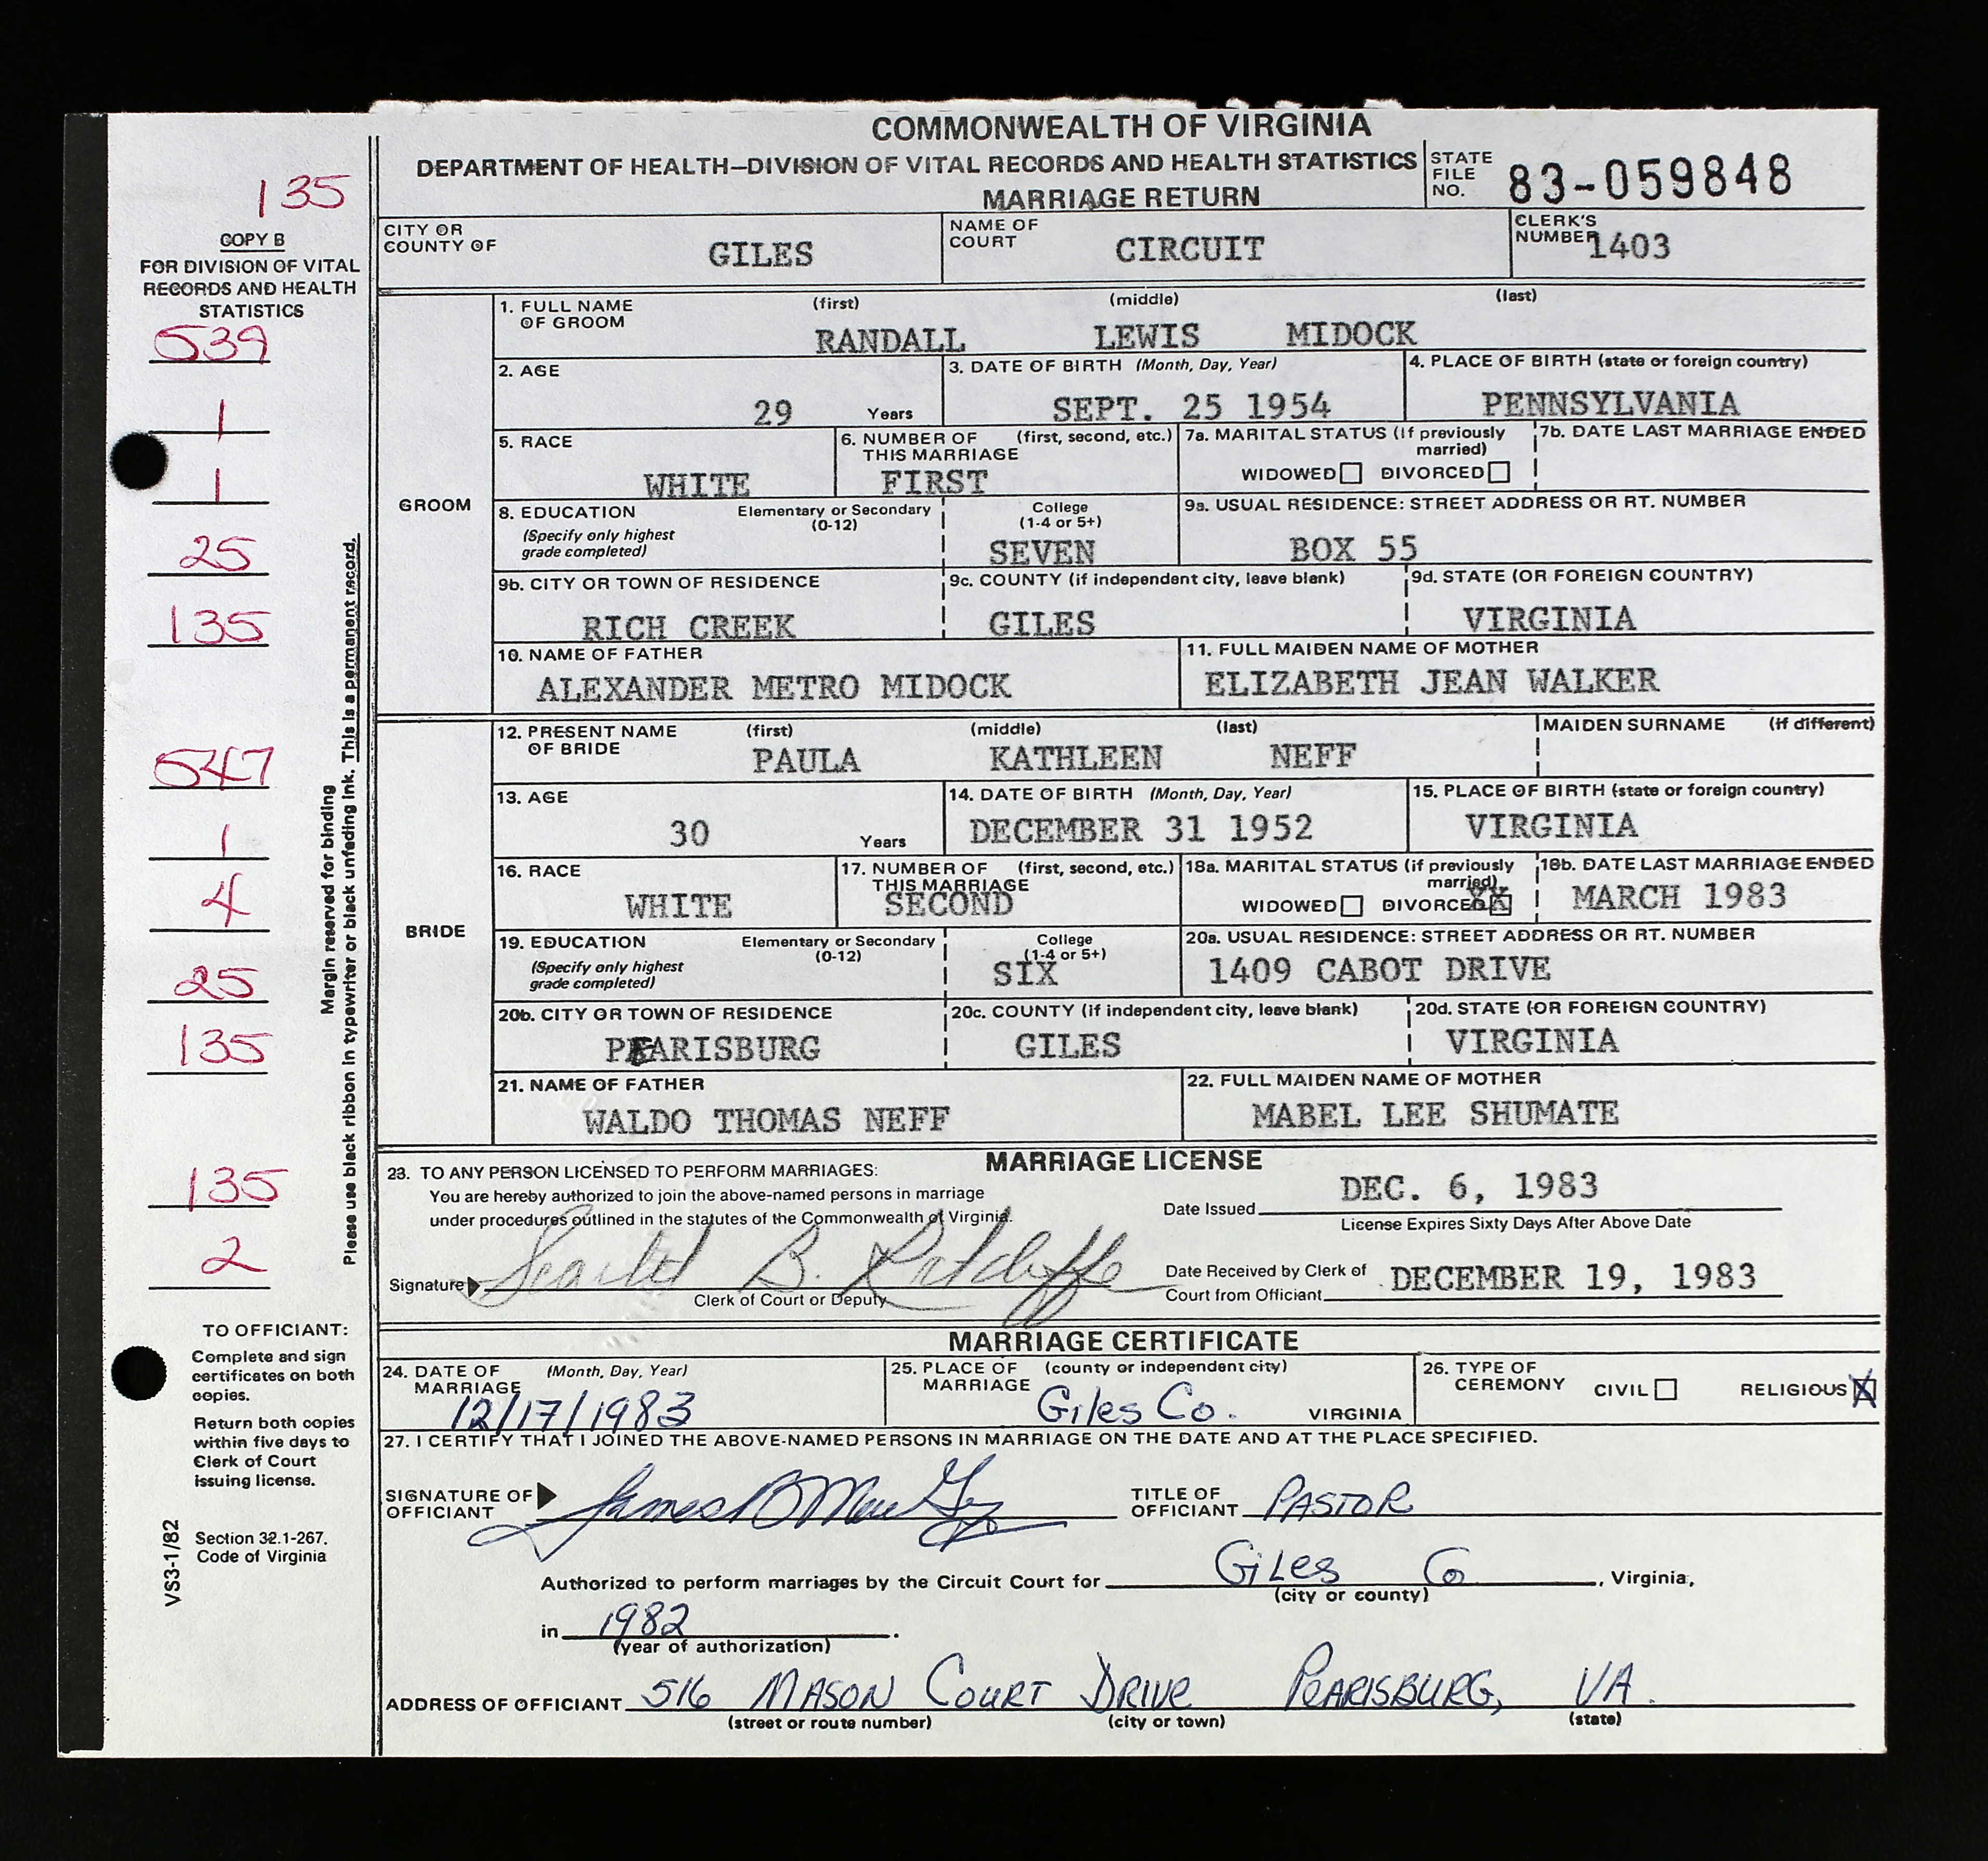 COMMONWEALTH OF VIRGINIA
DEPARTMENT OF HEALTH—DIVISION OF VITAL RECORDS AND HEALTH STATISTICS
MARRIAGE RETURN
STATE FILE NO. 83-059848
135
COPY B
FOR DIVISION OF VITAL
RECORDS AND HEALTH
STATISTICS
539
1
1
25
135
547
1
4
25
135
135
2
Margin reserved for binding
Please use black ribbon in typewriter or black unfading ink. This is a permanent record.
TO OFFICIANT:
Complete and sign
certificates on both
copies.
Return both copies
within five days to
Clerk of Court
issuing license.
Section 32.1-267.
Code of Virginia
VS3-1/82
CITY OR COUNTY OF GILES
NAME OF COURT CIRCUIT
CLERK'S NUMBER 1403
GROOM
1. FULL NAME OF GROOM (first) (middle) (last)
RANDALL LEWIS MIDOCK
2. AGE 29 Years
3. DATE OF BIRTH (Month, Day, Year) SEPT. 25 1954
4. PLACE OF BIRTH (state or foreign country) PENNSYLVANIA
5. RACE WHITE
6. NUMBER OF THIS MARRIAGE (first, second, etc.) FIRST
7a. MARITAL STATUS (If previously married) WIDOWED DIVORCED
7b. DATE LAST MARRIAGE ENDED
8. EDUCATION (Specify only highest grade completed) Elementary or Secondary (0-12) College (1-4 or 5+) SEVEN
9a. USUAL RESIDENCE: STREET ADDRESS OR RT. NUMBER BOX 55
9b. CITY OR TOWN OF RESIDENCE RICH CREEK
9c. COUNTY (if independent city, leave blank) GILES
9d. STATE (OR FOREIGN COUNTRY) VIRGINIA
10. NAME OF FATHER ALEXANDER METRO MIDOCK
11. FULL MAIDEN NAME OF MOTHER ELIZABETH JEAN WALKER
BRIDE
12. PRESENT NAME OF BRIDE (first) (middle) (last) MAIDEN SURNAME (if different)
PAULA KATHLEEN NEFF
13. AGE 30 Years
14. DATE OF BIRTH (Month, Day, Year) DECEMBER 31 1952
15. PLACE OF BIRTH (state or foreign country) VIRGINIA
16. RACE WHITE
17. NUMBER OF THIS MARRIAGE (first, second, etc.) SECOND
18a. MARITAL STATUS (if previously married) WIDOWED DIVORCED XX
18b. DATE LAST MARRIAGE ENDED MARCH 1983
19. EDUCATION (Specify only highest grade completed) Elementary or Secondary (0-12) College (1-4 or 5+) SIX
20a. USUAL RESIDENCE: STREET ADDRESS OR RT. NUMBER 1409 CABOT DRIVE
20b. CITY OR TOWN OF RESIDENCE PEARISBURG
20c. COUNTY (if independent city, leave blank) GILES
20d. STATE (OR FOREIGN COUNTRY) VIRGINIA
21. NAME OF FATHER WALDO THOMAS NEFF
22. FULL MAIDEN NAME OF MOTHER MABEL LEE SHUMATE
MARRIAGE LICENSE
23. TO ANY PERSON LICENSED TO PERFORM MARRIAGES:
You are hereby authorized to join the above-named persons in marriage
under procedures outlined in the statutes of the Commonwealth of Virginia.
Date Issued DEC. 6, 1983
License Expires Sixty Days After Above Date
Signature Scarlet B. Ratcliffe
Clerk of Court or Deputy
Date Received by Clerk of Court from Officiant DECEMBER 19, 1983
MARRIAGE CERTIFICATE
24. DATE OF MARRIAGE (Month, Day, Year) 12/17/1983
25. PLACE OF MARRIAGE (county or independent city) Giles Co. VIRGINIA
26. TYPE OF CEREMONY CIVIL RELIGIOUS X
27. I CERTIFY THAT I JOINED THE ABOVE-NAMED PERSONS IN MARRIAGE ON THE DATE AND AT THE PLACE SPECIFIED.
SIGNATURE OF OFFICIANT James
TITLE OF OFFICIANT PASTOR
Authorized to perform marriages by the Circuit Court for Giles Co, Virginia,
(city or county)
in 1982.
(year of authorization)
ADDRESS OF OFFICIANT 516 MASON COURT DRIVE PEARISBURG, VA.
(street or route number) (city or town) (state)